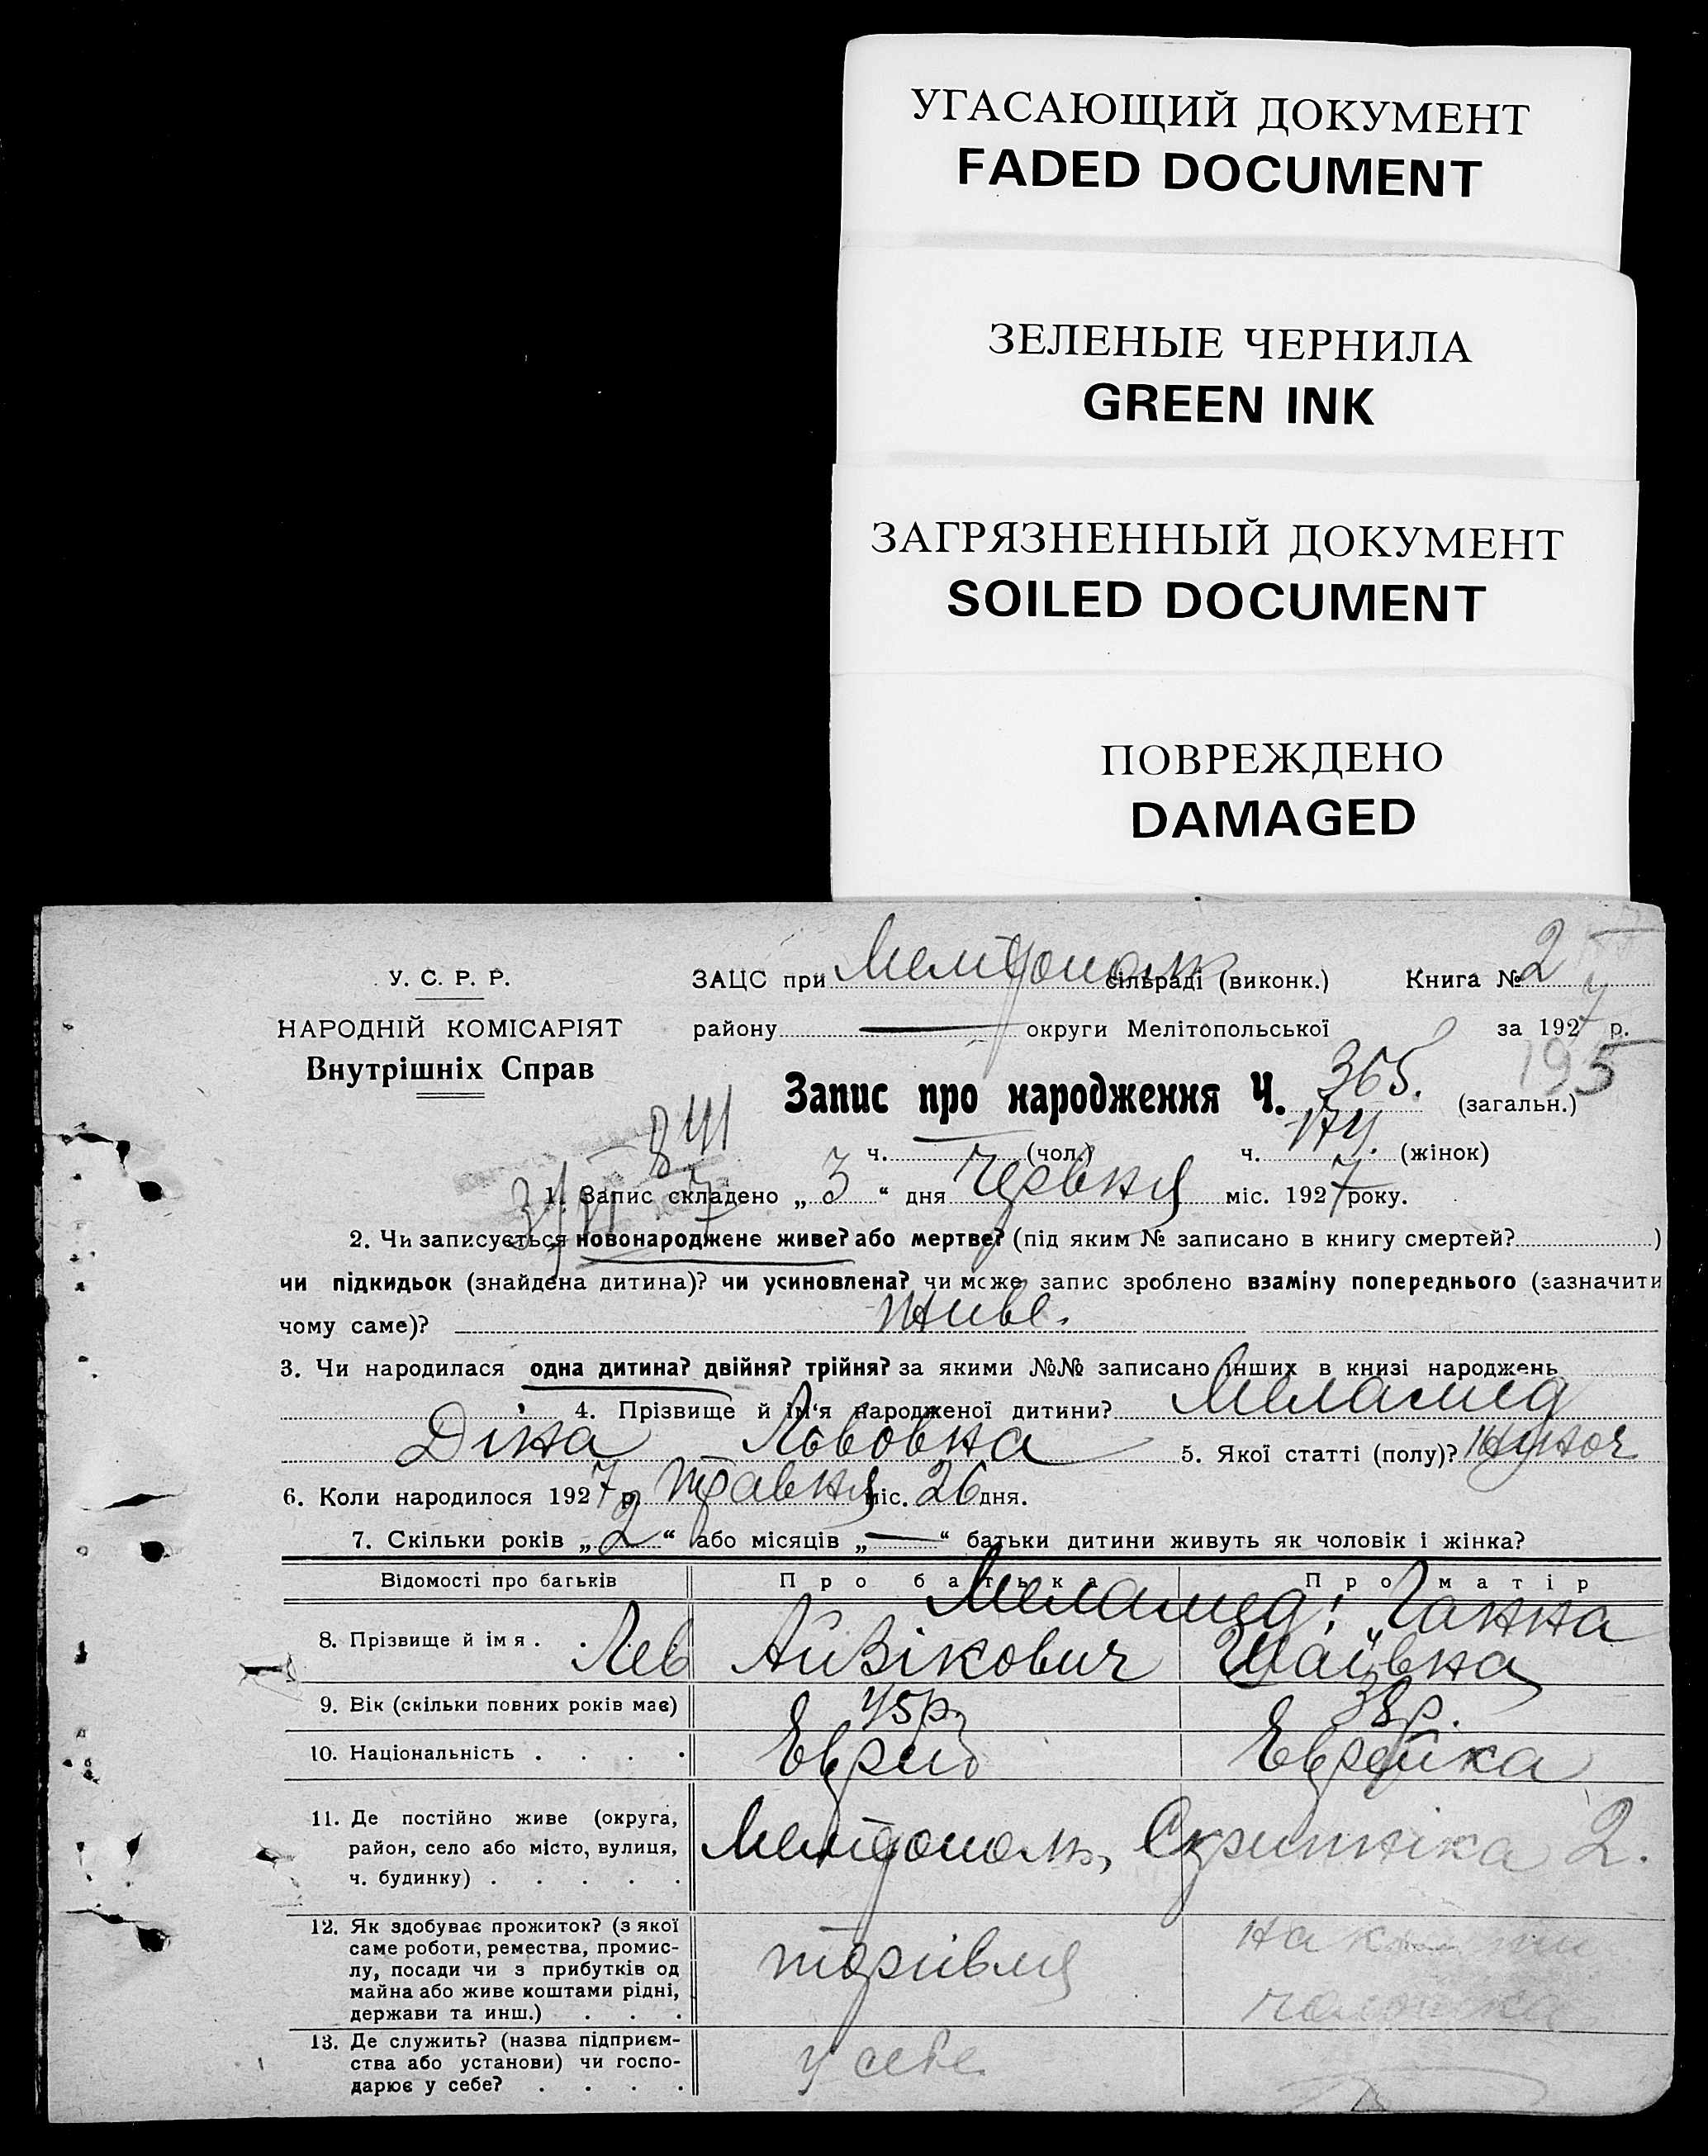 УГАСАЮЩИЙ ДОКУМЕНТ
FADED DOCUMENT
ЗЕЛЕНЫЕ ЧЕРНИЛА
GREEN INK
ЗАГРЯЗНЕННЫЙ ДОКУМЕНТ
SOILED DOCUMENT
ПОВРЕЖДЕНО
DAMAGED
У. С. Р. Р. ЗАЦС при Мелітополь сільраді (виконк.) Книга № 2
НАРОДНІЙ КОМІСАРІЯТ району округи Мелітопольської за 1927 р.
Внутрішніх Справ
195
Запис про народження Ч. 365. (загальн.)
841
ч. (чол.) ч. 174. (жінок)
1. Запис складено „ 3 “ дня Червня міс. 1927 року.
2. Чи записується новонароджене живе? або мертве? (під яким № записано в книгу смертей? )
чи підкидьок (знайдена дитина)? чи усиновлена? чи може запис зроблено взаміну попереднього (зазначити
чому саме)? живе.
3. Чи народилася одна дитина? двійня? трійня? за якими №№ записано інших в книзі народжень
4. Прізвище й ім‘я народженої дитини? Меламед
Діна Львовна 5. Якої статті (полу)?
6. Коли народилося 1927 р. травня міс. 26 дня.
7. Скільки років „ 2 “ або місяців „ — “ батьки дитини живуть як чоловік і жінка?
Відомості про батьків Про батька Про матір
Меламед: Ганна
8. Прізвище й імя . . Лев Айзікович Шаївна
9. Вік (скільки повних років має) 45р. 38р.
10. Національність . . . . Еврей Еврейка
11. Де постійно живе (округа,
район, село або місто, вулиця, Мелітополь, Скрипніка 2.
ч. будинку) . . . . .
12. Як здобуває прожиток? (з якої
саме роботи, ремества, промис- на
лу, посади чи з прибутків од торгівля
майна або живе коштами рідні,
держави та инш.) . . . чоловіка
13. Де служить? (назва підприєм-
ства або установи) чи госпо- у себе
дарює у себе? . . . .